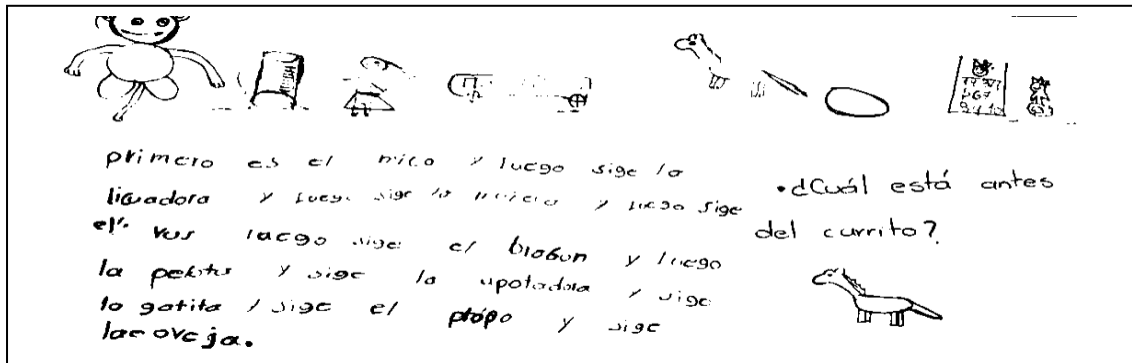 primero es el mico y luego sige la
licuadora y luego sige la muñera y luego sige
el vus luego sige el biobun y luego
la pelota y sige la apotadora y sige
la gatita y sige el plopo y sige
laeoveja.
•¿Cuál está antes
del currito?